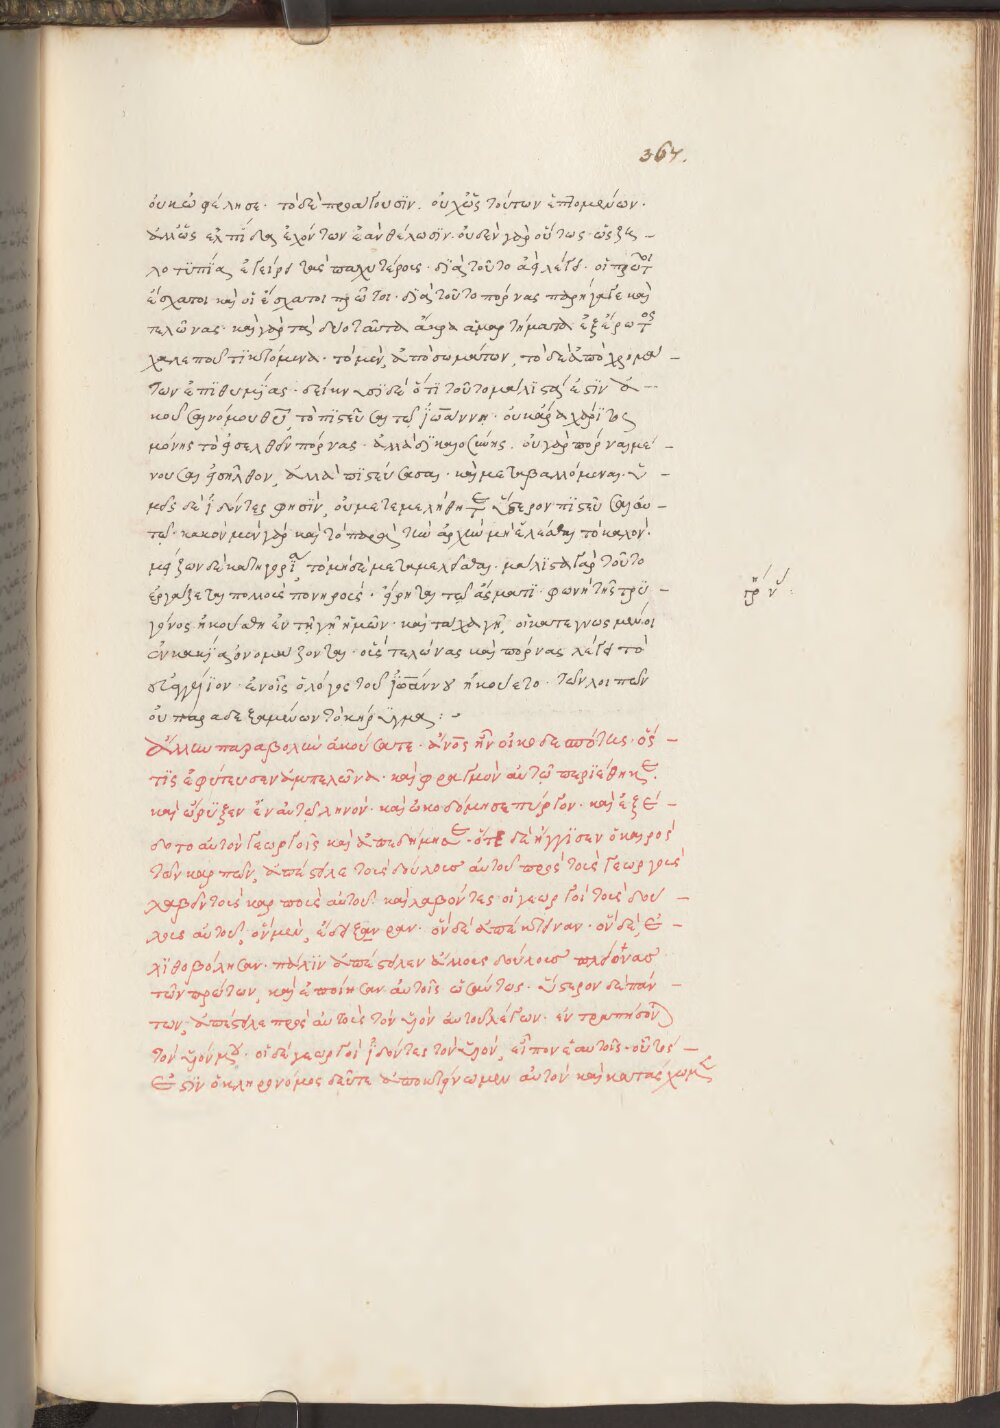 367.
οὐκ ὠφέλησε· τὸ δὲ προάγουσϊν. οὐχ ὡς τούτων ἑπομένων·
ἀλλ' ὡς ἐλπίδας ἐχόντων ἐὰν θέλωσϊν· οὐδὲν γὰρ οὕτως· ὡς ζη —
λοτϋπίας ἐγείρει τοὺς παχυτέρους· δϊὰ τοῦτο ἀεὶ λέγει· οἱ πρῶτοι
ἔσχατοι καὶ οἱ ἔσχατοι πρῶτοι· δϊὰ τοῦτο πόρνας παρήγαγε καὶ
τελώνας· καὶ γὰρ τὰ δύο ταῦτα ἄκρα ἁμαρτήματα ἐξ ἔρωτος
χαλεποῦ τϊκτόμενα· τὸ μὲν, ἀπὸ σωμάτων, τὸ δὲ ἀπὸ χρημά —
των ἐπϊθυμίας· δείκνυσϊ δὲ ὅτϊ τοῦτο μάλϊστά ἐστϊν ἀ —
κοῦσαι νόμου θῡ, τὸ πϊστεῦσαι τῷ ἰωάννῃ· οὐκ ἄρα χάρϊτος
μόνης τὸ εἰσελθεῖν πόρνας· ἀλλὰ δϊκαιοσύνης. οὐ γὰρ πόρναι μέ —
νουσαι εἰσῆλθον, ἀλλὰ πϊστεύσασαι· καὶ μεταβαλλόμεναι. ὑ —
μεῖς δὲ ϊδόντες φησϊν, οὐ μετεμελήθητε ὕστερον πϊστεῦσαι αὐ —
τῷ· κακὸν μὲν γὰρ καὶ τὸ παρὰ τὴν ἀρχὴν μὴ ἑλέσθαι τὸ καλὸν·
μείζων δὲ κατηγορία, τὸ μηδὲ μεταμελεῖσθαι. μάλϊστα γὰρ τοῦτο
ἐργάζεται πολλοὺς πονηρούς. εἴρηται τῷ ᾄσματϊ· φωνὴ τῆς τρϋ —
γόνος ἠκούσθη ἐν τῇ γῇ ἡμῶν· καὶ τάχα γῆ, οἱ κατεγνωσμένοι
ἐν κακίᾳ ὀνομάζονται· οὓς τελώνας καὶ πόρνας λέγει τὸ
εὐαγγέλϊον· ἐν οἷς ὁ λόγος τοῦ ἰωάννου ἠκούετο· τῶν λοιπῶν
οὐ παραδεξαμένων τὸ κήρυγμα: ~
ἄλλην παραβολὴν ἀκούσατε· ἄνος ἦν οἰκοδεσπότης· ὅς —
τϊς ἐφύτευσεν ἀμπελῶνα· καὶ φραγμὸν αὐτῷ περϊέθηκε.
καὶ ὤρϋξεν ἐν αὐτῷ ληνόν· καὶ ὠκοδόμησε πύργον· καὶ ἐξέ —
δοτο αὐτὸν γεωργοῖς καὶ ἀπεδήμησε· ὅτε δὲ ἤγγϊσεν ὁ καιρὸς
τῶν καρπῶν, ἀπέστειλε τοὺς δούλους αὐτοῦ πρὸς τοὺς γεωργοὺς
λαβεῖν τοὺς καρποὺς αὐτοῦ· καὶ λαβόντες οἱ γεωργοὶ τοὺς δού —
λους αὐτοῦ, ὃν μὲν, ἔδειραν· ὃν δὲ ἀπέκτειναν· ὃν δὲ, ἐ —
λϊθοβόλησαν· πάλϊν ἀπέστειλεν ἄλλους δούλους πλείονας
τῶν πρώτων, καὶ ἐποίησαν αὐτοῖς ὡσαύτως· ὕστερον δὲ πάν —
των, ἀπέστειλε πρὸς αὐτοὺς τὸν υἱὸν αὐτοῦ λέγων· ἐντραπήσονται
τὸν υἱόν μου· οἱ δὲ γεωργοὶ ϊδόντες τὸν υἱὸν, εἶπον ἑαυτοῖς· οὗτός —
ἐστϊν ὁ κληρονόμος δεῦτε ἀποκτείνωμεν αὐτὸν καὶ κατάσχωμεν